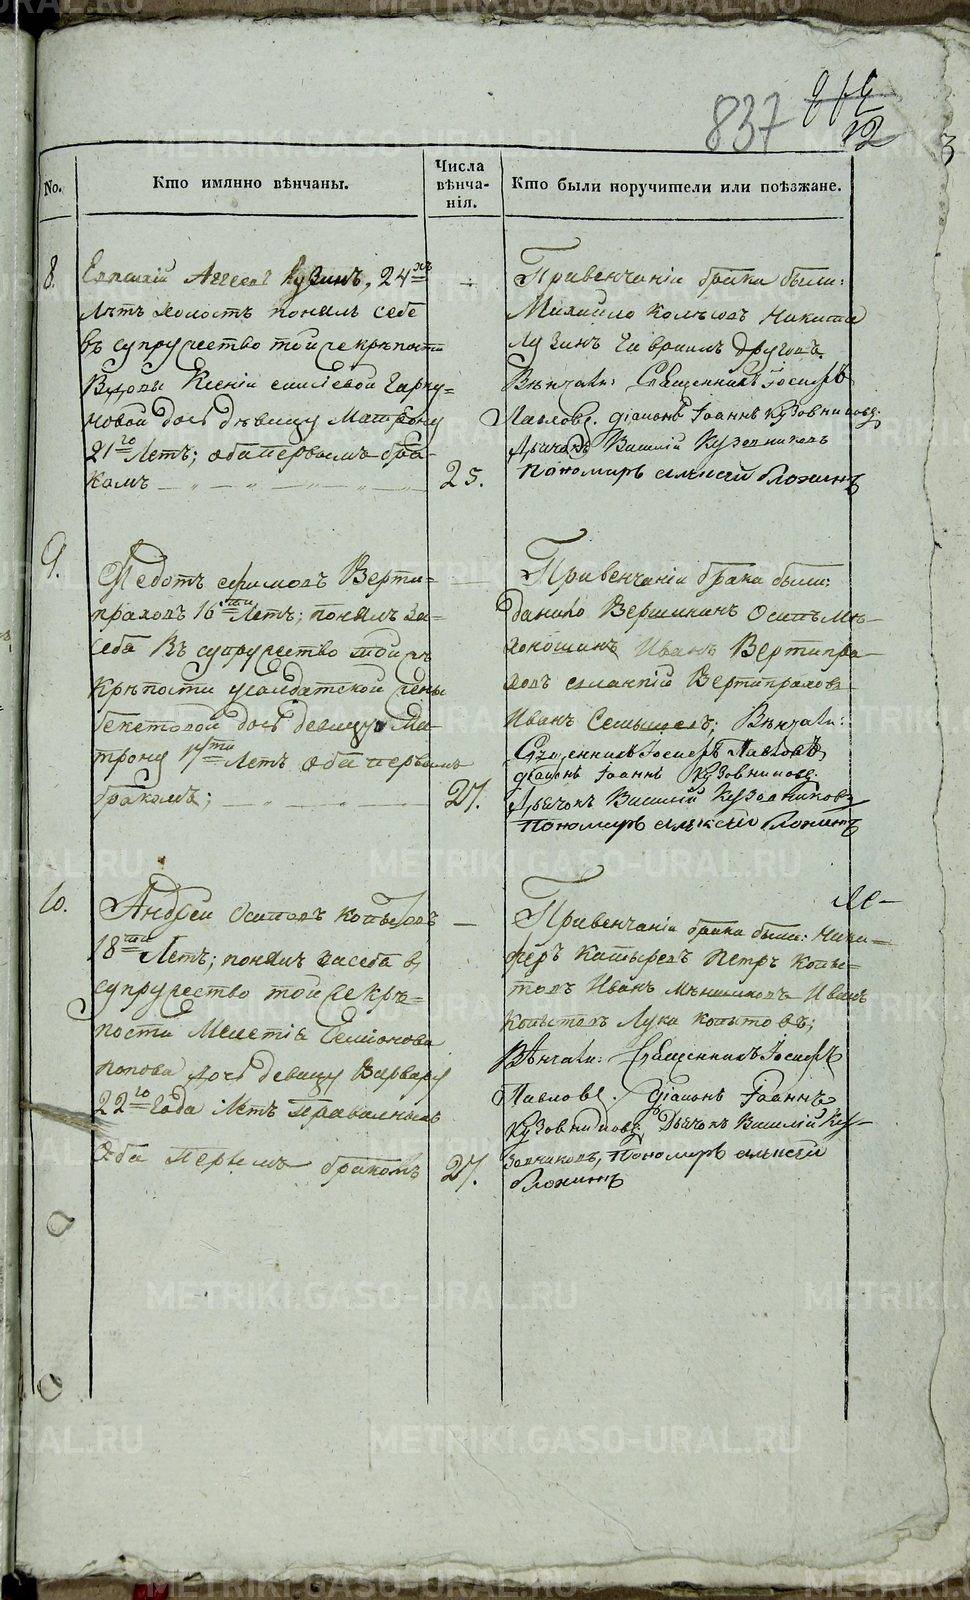 837
12
3
No.
Кто имянно вѣнчаны.
Числа
вѣнча-
нія.
Кто были поручители или поѣзжане.
8.
Кузинъ, 24хъ
Лѣтъ холостъ понялъ себѣ
въ супружество той же крѣпости
Вдовы Ксеніи
дочь дѣвицу Матрену
21го Лѣтъ; оба первымъ бра-
комъ
25.
Привенчаніи брака были:
Михайло Никита
другова
Вѣнчали: Священникъ Іосифъ
Павловъ. діаконъ Іоаннъ Кузовниковъ
Дьячокъ Василій Кузовниковъ
Пономарь Алексей
9.
Федотъ Ефимовъ Верти-
праховъ 16ти Летъ; понялъ за-
себя въ супружество той же
Крѣпости салдатской жены
дочь девицу Ма-
трону 17ти Летъ оба первымъ
бракомъ;
27.
Привенчаніи брака были:
Данило Вершининъ Осипъ Мѣ-
хоношинъ Иванъ Вертипра-
ховъ Вертипраховъ
Иванъ Вѣнчали:
Священникъ Іосифъ Павловъ
діаконъ Іоаннъ Кузовниковъ
Дьячокъ Василій Кузовниковъ
Пономарь Алексей
10.
Андрей Осиповъ Копытовъ
18ти Летъ; понялъ засебя въ
супружество той же крѣ-
пости Мелетія Семіонова
Попова дочь девицу Варвару
22го Года Летъ
Оба первымъ бракомъ
27.
Привенчаніи брака были: Ники-
феръ Катыревъ Петръ Копы-
товъ Иванъ Мѣншиковъ Иванъ
Копытовъ Лука Копытовъ;
Вѣнчали: Священникъ Іосифъ
Павловъ. Діаконъ Іоаннъ
Кузовниковъ Дьячокъ Василій Ку-
зовниковъ, Пономарь Алексей
METRIKI.GASO-URAL.RU